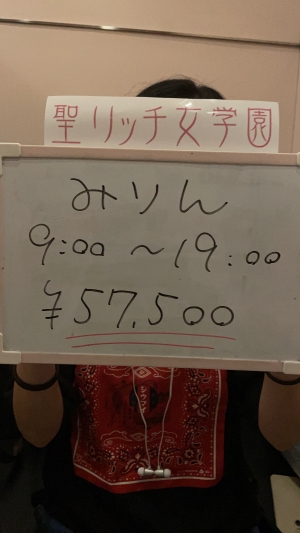 聖リッチ女学園
みりん
9:00 ~ 19:00
¥57,500